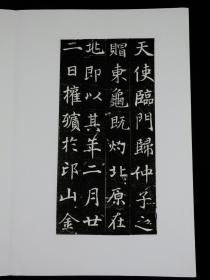 天使臨門歸仲子之
賵東龜既灼北原在
兆即以其年二月廿
二日權殯於邙山金